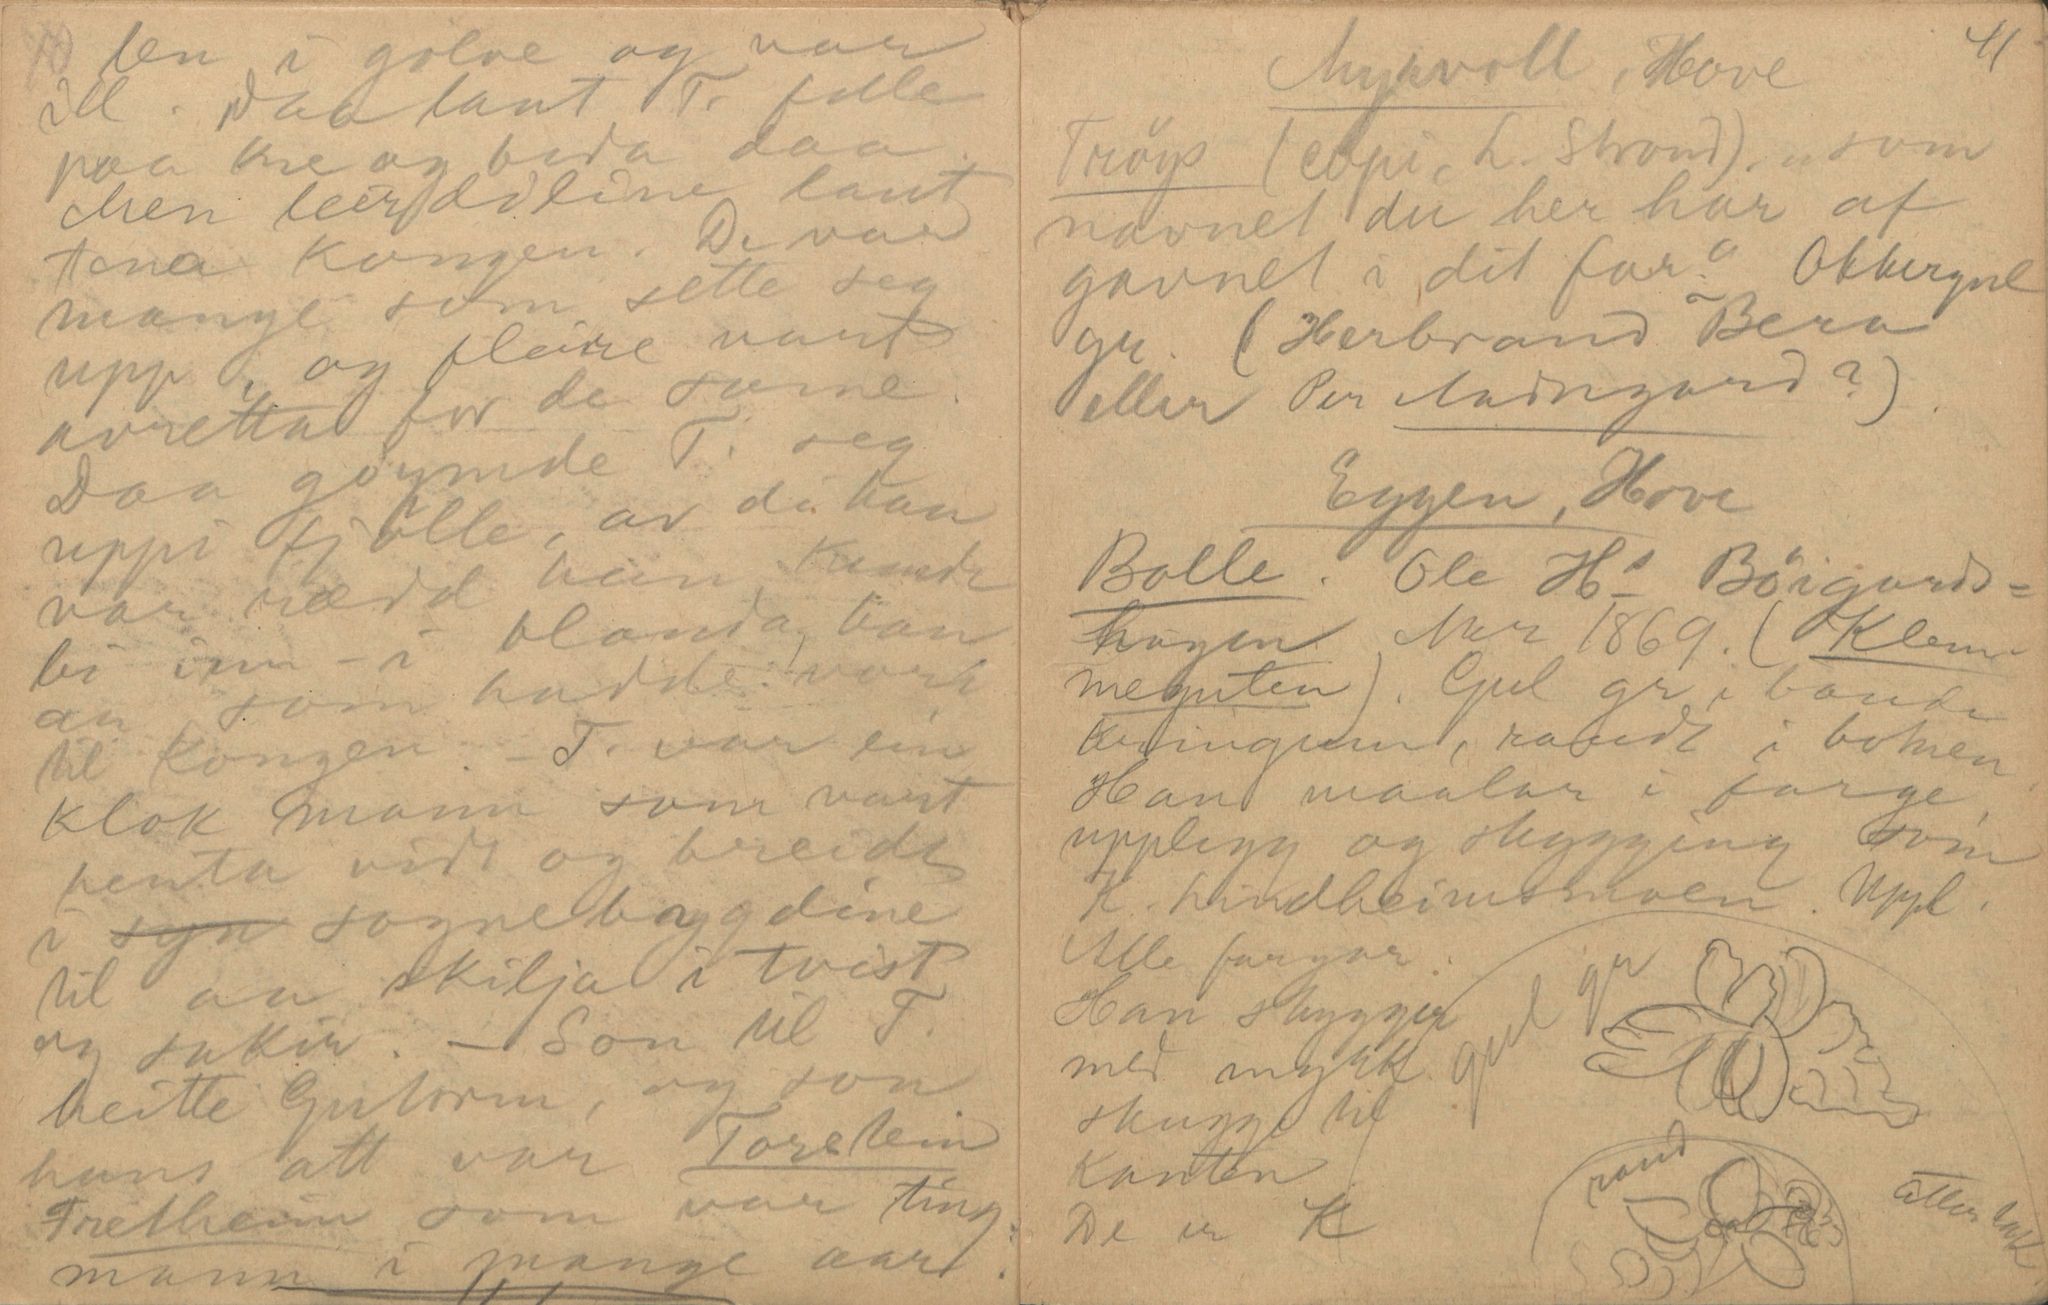 len i golve og var
ill. Daa laut T. falle
paa kne og beda daa.
Men leirdiline laut
tena Kongen. De var
mange som sette seg
upp i, og fleire vart
avretta for de same.
Daa gøymde T. seg
uppi fjølle, av di han
var rædd han kunde
bi inn-i blanda, han
au som hadde vore
til Kongen. - T. var ein
klok mann som vart
henta vidt og breidt
i syn sognebygdine
til aa skilja i tvist
og sakir. - Son til T.
heitte Gutorm, og son
hans att var Torstein
Fretheim som var ting-
mann i mange aar.
41
Myrvoll, Hove
Trøys (copi, L. Strond). "som
navnet du her har af
gavnet i dit far." Okkergul
gr. (Herbrand Bera
eller Per Nedngard?).
Eggen, Hove
Bolle. Ole Hs Bøigards-
hagen. Mer 1869. (Klem-
meguten). Gul gr i bande
kringum, raudt i botnen.
Han maalar i farge,
upplegg og skygging som
K. Lindheimsmoen. Uppl.
Alle fargar.
Han skyggjer
med mykk
skugge til
Kanten
De er K
gul gr
raud